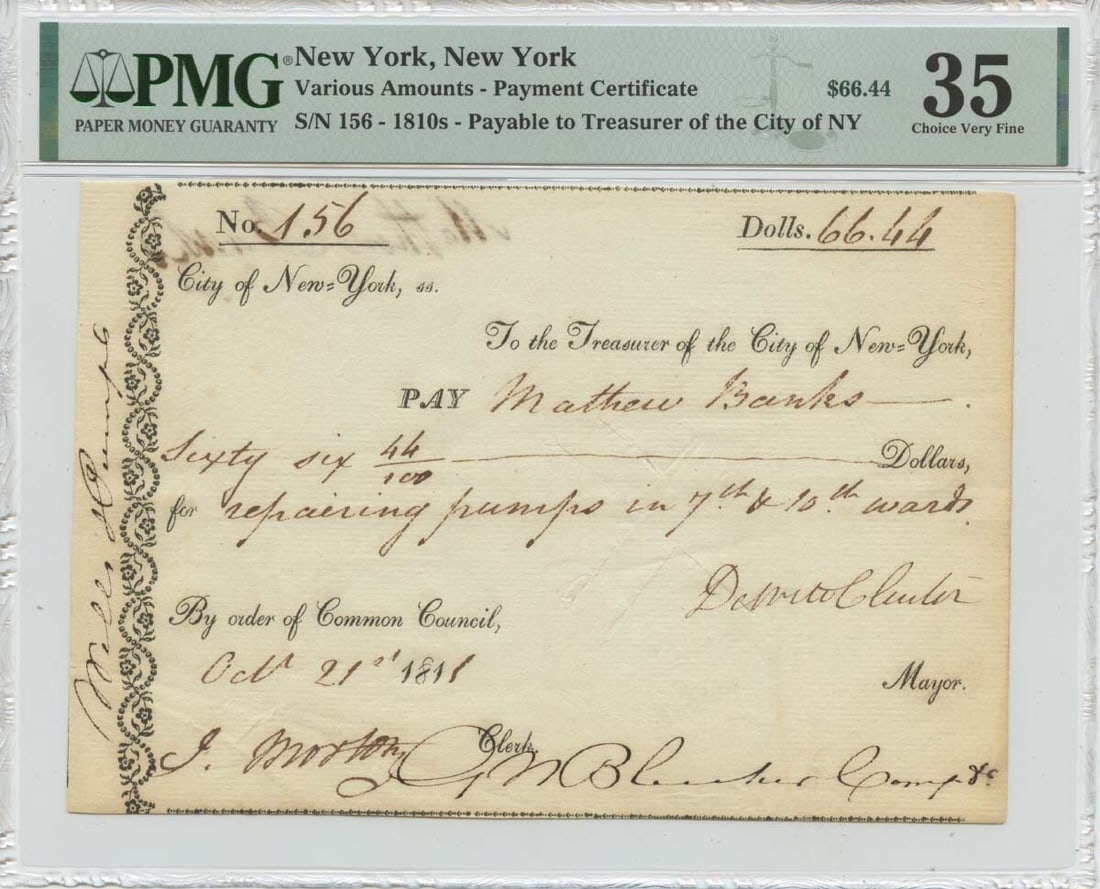 PMG® New York, New York
PAPER MONEY GUARANTY
Various Amounts - Payment Certificate
S/N 156 - 1810s - Payable to Treasurer of the City of NY
$66.44
35
Choice Very Fine
No. 156
Dolls. 66.44
City of New=York, ss.
To the Treasurer of the City of New=York,
PAY Mathew Banks
Sixty six 44/100 Dollars,
for repairing pumps in 7th & 10th wards.
DeWitt Clinton
By order of Common Council,
Octr 21st 1811
Mayor.
J. Morton Clerk.
Bleecker Comp
Wells & Pumps